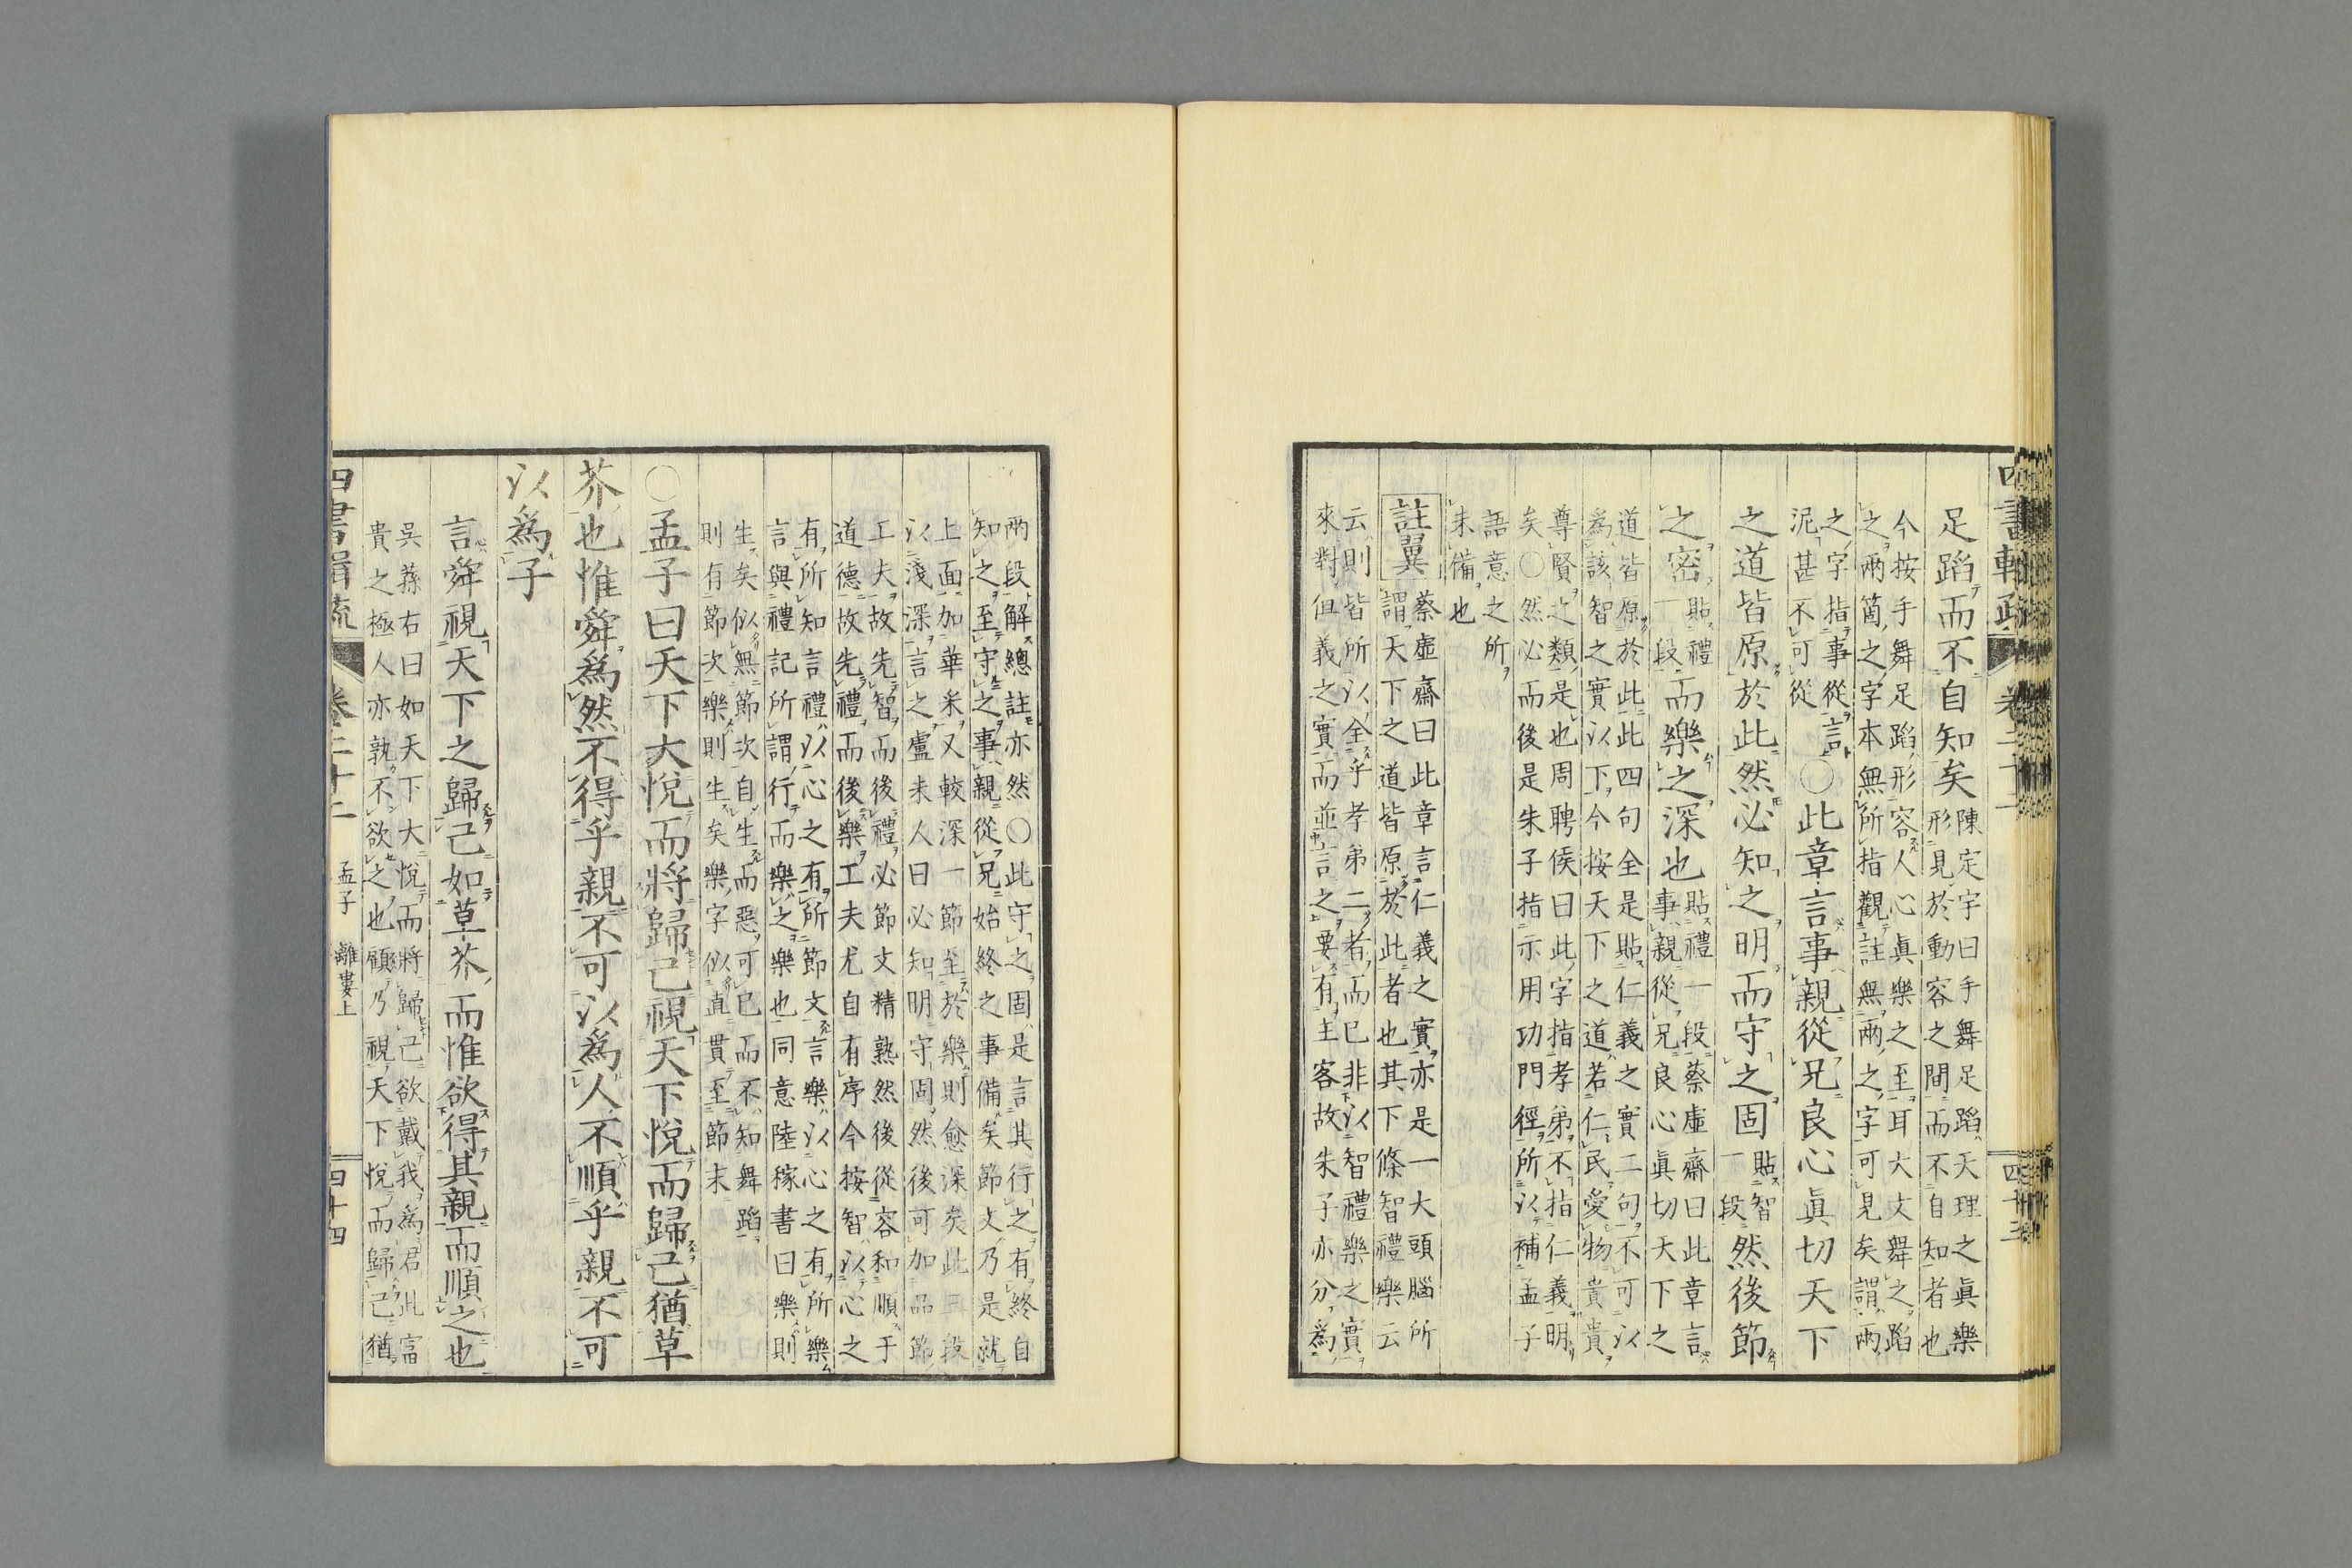 四書輯疏　卷二十二　四十三
足蹈而不自知矣
陳定宇曰手舞足蹈天理之眞樂
形見於動容之間而不自知者也
今按手舞足蹈形容人心眞樂之至耳大文舞之蹈
之兩箇之字本無所指觀註無兩之字可見矣謂兩
之字指事從言
泥甚不可從
○此章言事親從兄良心眞切天下
之道皆原於此然必知之明而守之固
貼智
一段
然後節
之密
貼禮
一段
而樂之深也
貼禮一段蔡虛齋曰此章言
事親從兄良心眞切天下之
道皆原於此此四句全是貼仁義之實二句不可以
爲該智之實以下今按天下之道若仁民愛物貴貴
尊賢之類是也周聘侯曰此字指孝弟不指仁義明
矣○然必而後是朱子指示用功門徑所以補孟子
語意之所
未備也
註翼
蔡虛齋曰此章言仁義之實亦是一大頭腦所
謂天下之道皆原於此者也其下條智禮樂云
云則皆所以全乎孝弟二者而已非以智禮樂之實
來對但義之實而並言之要有主客故朱子亦分爲
兩段解總註亦然○此守之固是言其行之有終自
知之至守之事親從兄始終之事備矣節文乃是就
上面加華采又較深一節至於樂則愈深矣此三段
以淺深言之盧未人曰必知明守固然後可加品節
工夫故先智而後禮必節文精熟然後從容和順于
道德故先禮而後樂工夫尤自有序今按智以心之
有所知言禮以心之有所節文言樂以心之有所樂
言與禮記所謂行而樂之樂也同意陸稼書曰樂則
生矣似無節次自生而惡可已而不知舞蹈
則有節次樂則生矣樂字似直貫至節末
○孟子曰天下大悅而將歸己視天下悅而歸己猶草
芥也惟舜爲然不得乎親不可以爲人不順乎親不可
以爲子
言舜視天下之歸己如草芥而惟欲得其親而順之也
吳蓀右曰如天下大悅而將歸己欲戴我爲君此富
貴之極人亦孰不欲之也顧乃視天下悅而歸己猶
四書輯疏　卷二十二　孟子　離婁上　四十四